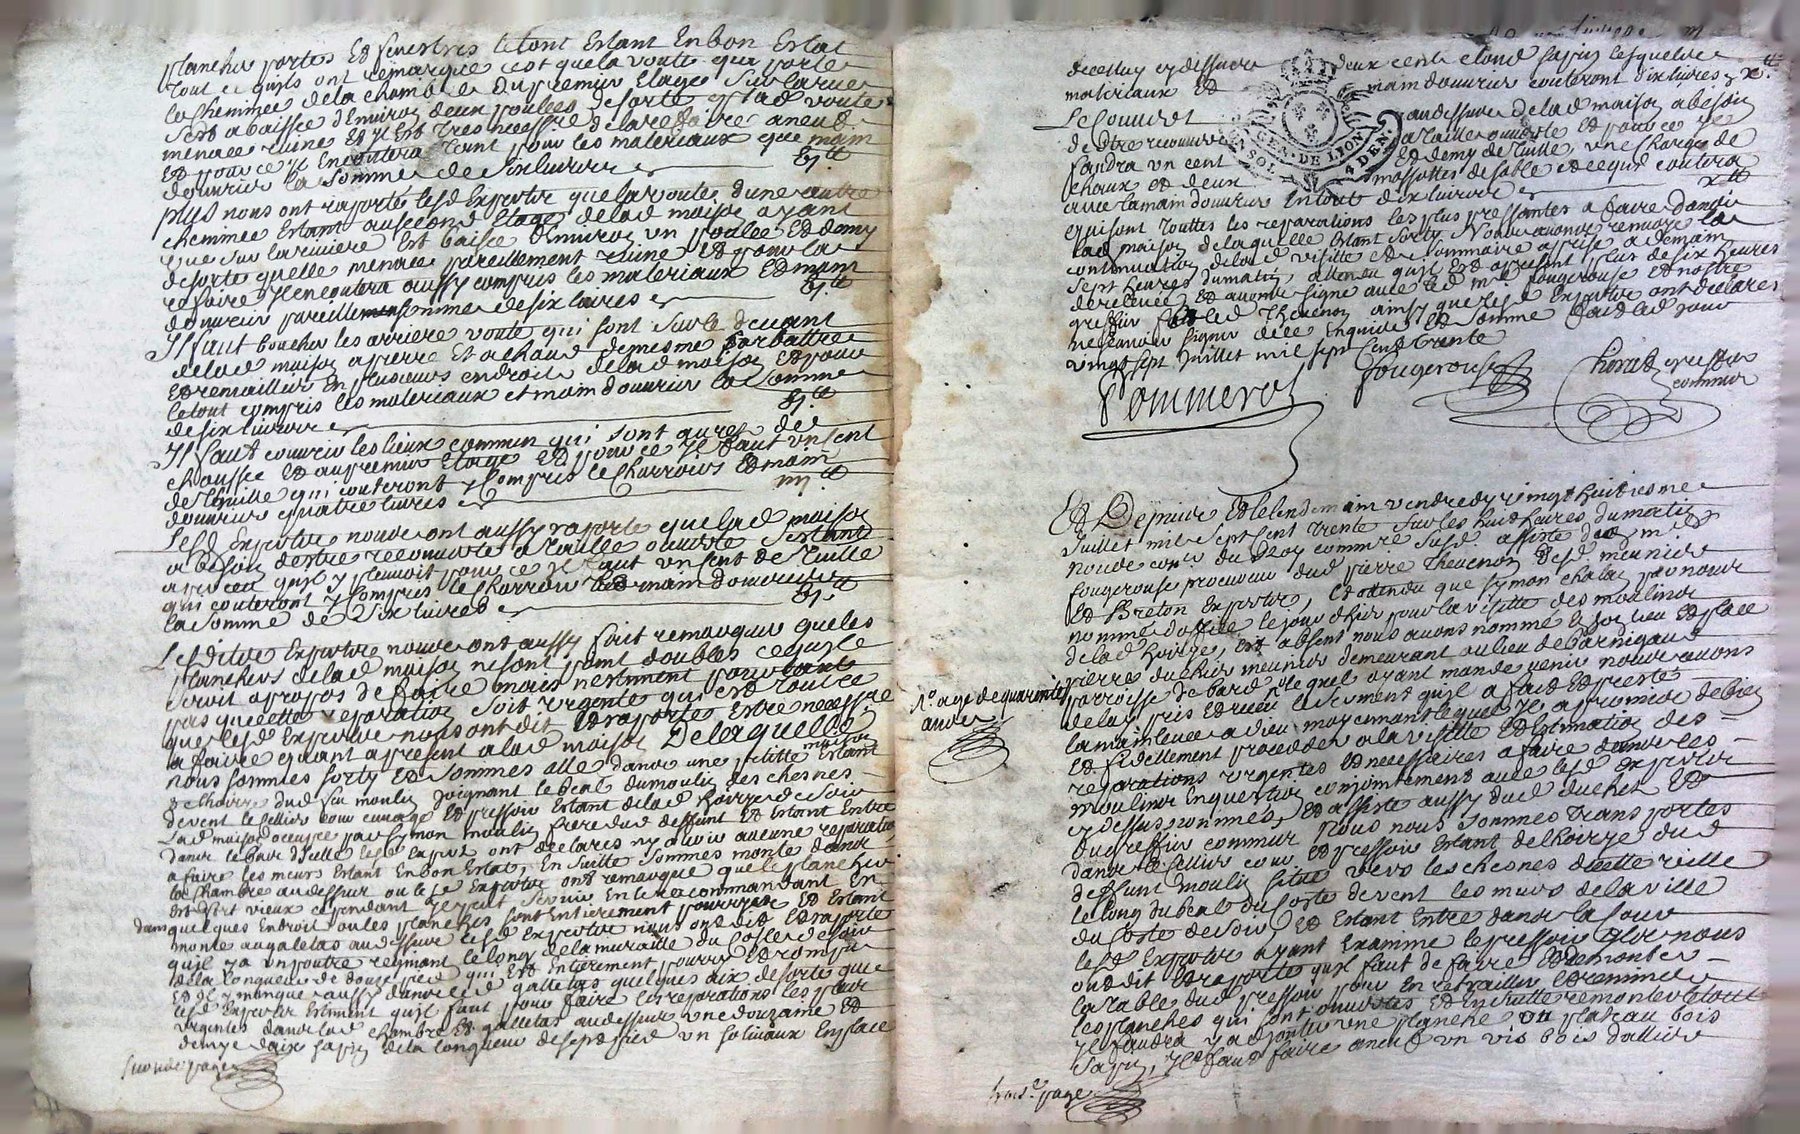 plancher portes Et fenestres letout Estant Enbon Estat
tout ce quils ont remarqué cest quela voute qui porte
la cheminée dela chambre du premier Etage sur larue
sest abaissée denviron deux poulces desorte q lad voute
menace ruine Et yl Est tres necessre de larefaire aneuf
Et pour ce yl Encoutera tant pour les materiaux que main
douvrier la somme de six livres vj.lt
plus nous ont raporté lesd Experts que lavoute dune autre
cheminée Estant ausecond Etage delad maison ayant
veue sur lariviere Est baissée denviron un poulce Et demy
desorte quelle menace pareillement ruine Et pour la
refaire yl encoutera aussy compris les materiaux Et main
douvrier pareille somme de six livres vj.lt
Il faut boucher les arriere voute qui sont sur le devant
delad maison apierre Et achaud demesme rabattre
Et remailler En plusieurs endroits delad maison Et pour
letout compris les materiaux et main douvrier la somme
de six livres vj.lt
Il faut couvrir les lieux commun qui sont au rés de
chaussée Et au premier Etage Et pour ce yl faut un cent
de thuille qui couteront y compris le charrois Et main
douvrier quatre livres iiij.lt
Lesd Experts nous ont aussy raporté que lad maison
a besoin destre recouverte a taille ouverte
apercu quil y pleuvoit pour ce yl faut un cent de tuille
qui couteront y compris le charroy Et main douvrier
la somme de six livres vj.lt
Lesdites Experts nous ont aussy fait remarquer que les
planchers delad maison ne sont point doubles ce quil
seroit apropos de faire mais nestiment pourtant
pas que cette reparation soit urgente qui est tout ce
que lesd Experts nous ont dit Et raporté Estre necessre
a faire quant apresent alad maison De laquelle
nous sommes sorty Et sommes allé dans une petitte maison Estant
delhoirie dud feu moulin joignant lebeal dumoulin des chesnes
devent le cellier cour cuvage Et pressoir Estant delad hoirye desoir
Lad maison occupée par simon moulin frere dud deffunt Et Estant Entré
dans le bas dicelle lesd Experts ont declarés ny avoir aucune reparation
a faire les meurs Estant Enbon Estat, En suitte sommes monté dans
la chambre audessus ou lesd Experts ont remarqué que le plancher
est fort vieux cependant yl peut servir En le racommandant En
dans quelques Endroit ou les planches sont Entierement pourryes Et Estant
monté au galetas audessus lesd Experts nous ont dit Et raporté
quil y a un poutre regnant le long dela muraille du costé desoir
dela longueur de douze pied qui Est Entierement pourry Et rompu
Et yl y manque aussy dans led gallettas quelques aix desorte que
lesd Experts Estiment quil faut pour faire les reparations les plus
urgentes dans lad chambre Et galletas audessus une douzaine Et
demye daix sapin dela longueur desept pied un soliveaux Enplace
seconde page
decelluy cy dessure deux cents cloud sapin lesquelles
materiaux Et main douvrier couteront dix livres x.lt
Le couvert audessus delad maison abesoin
destre recouvert a taille ouverte Et pour ce yl
faudra un cent Et demy de tuille, une charge de
chaux et deux massottes de sable et ce qui coutera
avec lamain douvrier En tout dix livres x.lt
GEN. DE LION
UN SOL 4 DEN.
qui sont touttes les reparations les plus pressantes a faire dans
lad maison delaquelle Estant sorty Nous avons renvoyé la
continuation delad visitte Et sommaire aprise a demain
sept heures dumatin, attendu quil Est apresent plus de six heures
derelevée Et avons signé avec led me. fougerouse Et nostre
greffier led thevenon ainsy que lesd Experts ont declarés
ne scavoir signer decé Enquis Et somme fait led jour
vingt sept juillet mil sept Cent trente
Pommerol fougerouse Chorat greffier
commis
Et Depuis Et le lendemain vendredy vingt huitiesme
juillet mil sept cent trente sur les huit heures dumatin
nous conr. du Roy commre susd assisté dud m.
fougerouse procureur dud pierre Thevenon Et lesd meunier
Et Breton Experts, Et attendu que symon chalas par nous
nommé doffice le jour dhier pour la visitte des moulins
delad hoirye, est absent nous avons nommé En son lieu Et place
pierre duchier meunier demeurant aulieu debarnigaud
N.o agé de quarente
ans
parroisse de bard, lequel ayant mandé venir nous avons
deluy pris Et receu le serment quil a fait Et presté
lamain levée a dieu moyennant lequel yl a promis de bien
Et fidellement proceder alavisitte Et Estimation des
reparations urgentes Et necessaires a faire dans les
moulins En question conjointement avec lesd Experts
cy dessus nommés, Et assisté aussy dud duchet Et
dugreffier commis Nous nous sommes transportés
dans le cellier cour Et pressoir Estant delhoirye dud
deffunt moulin situé vers les chesnes decette ville
le long du beal du costé devent les murs dela ville
du costé desoir, Et Estant Entré dans la cour
lesd Experts ayant Examiné le pressoir nous
ont dit Et raporté quil faut deffaire Et demonter
la table dud pressoir pour En retailler Et remettre
les planches qui sont ouvertes Et Ensuitte remonter letout
yl faudra y adjouter une planche ou plateau bois
sapin, yl faut faire aneuf un vis bois dallier
trois.e page